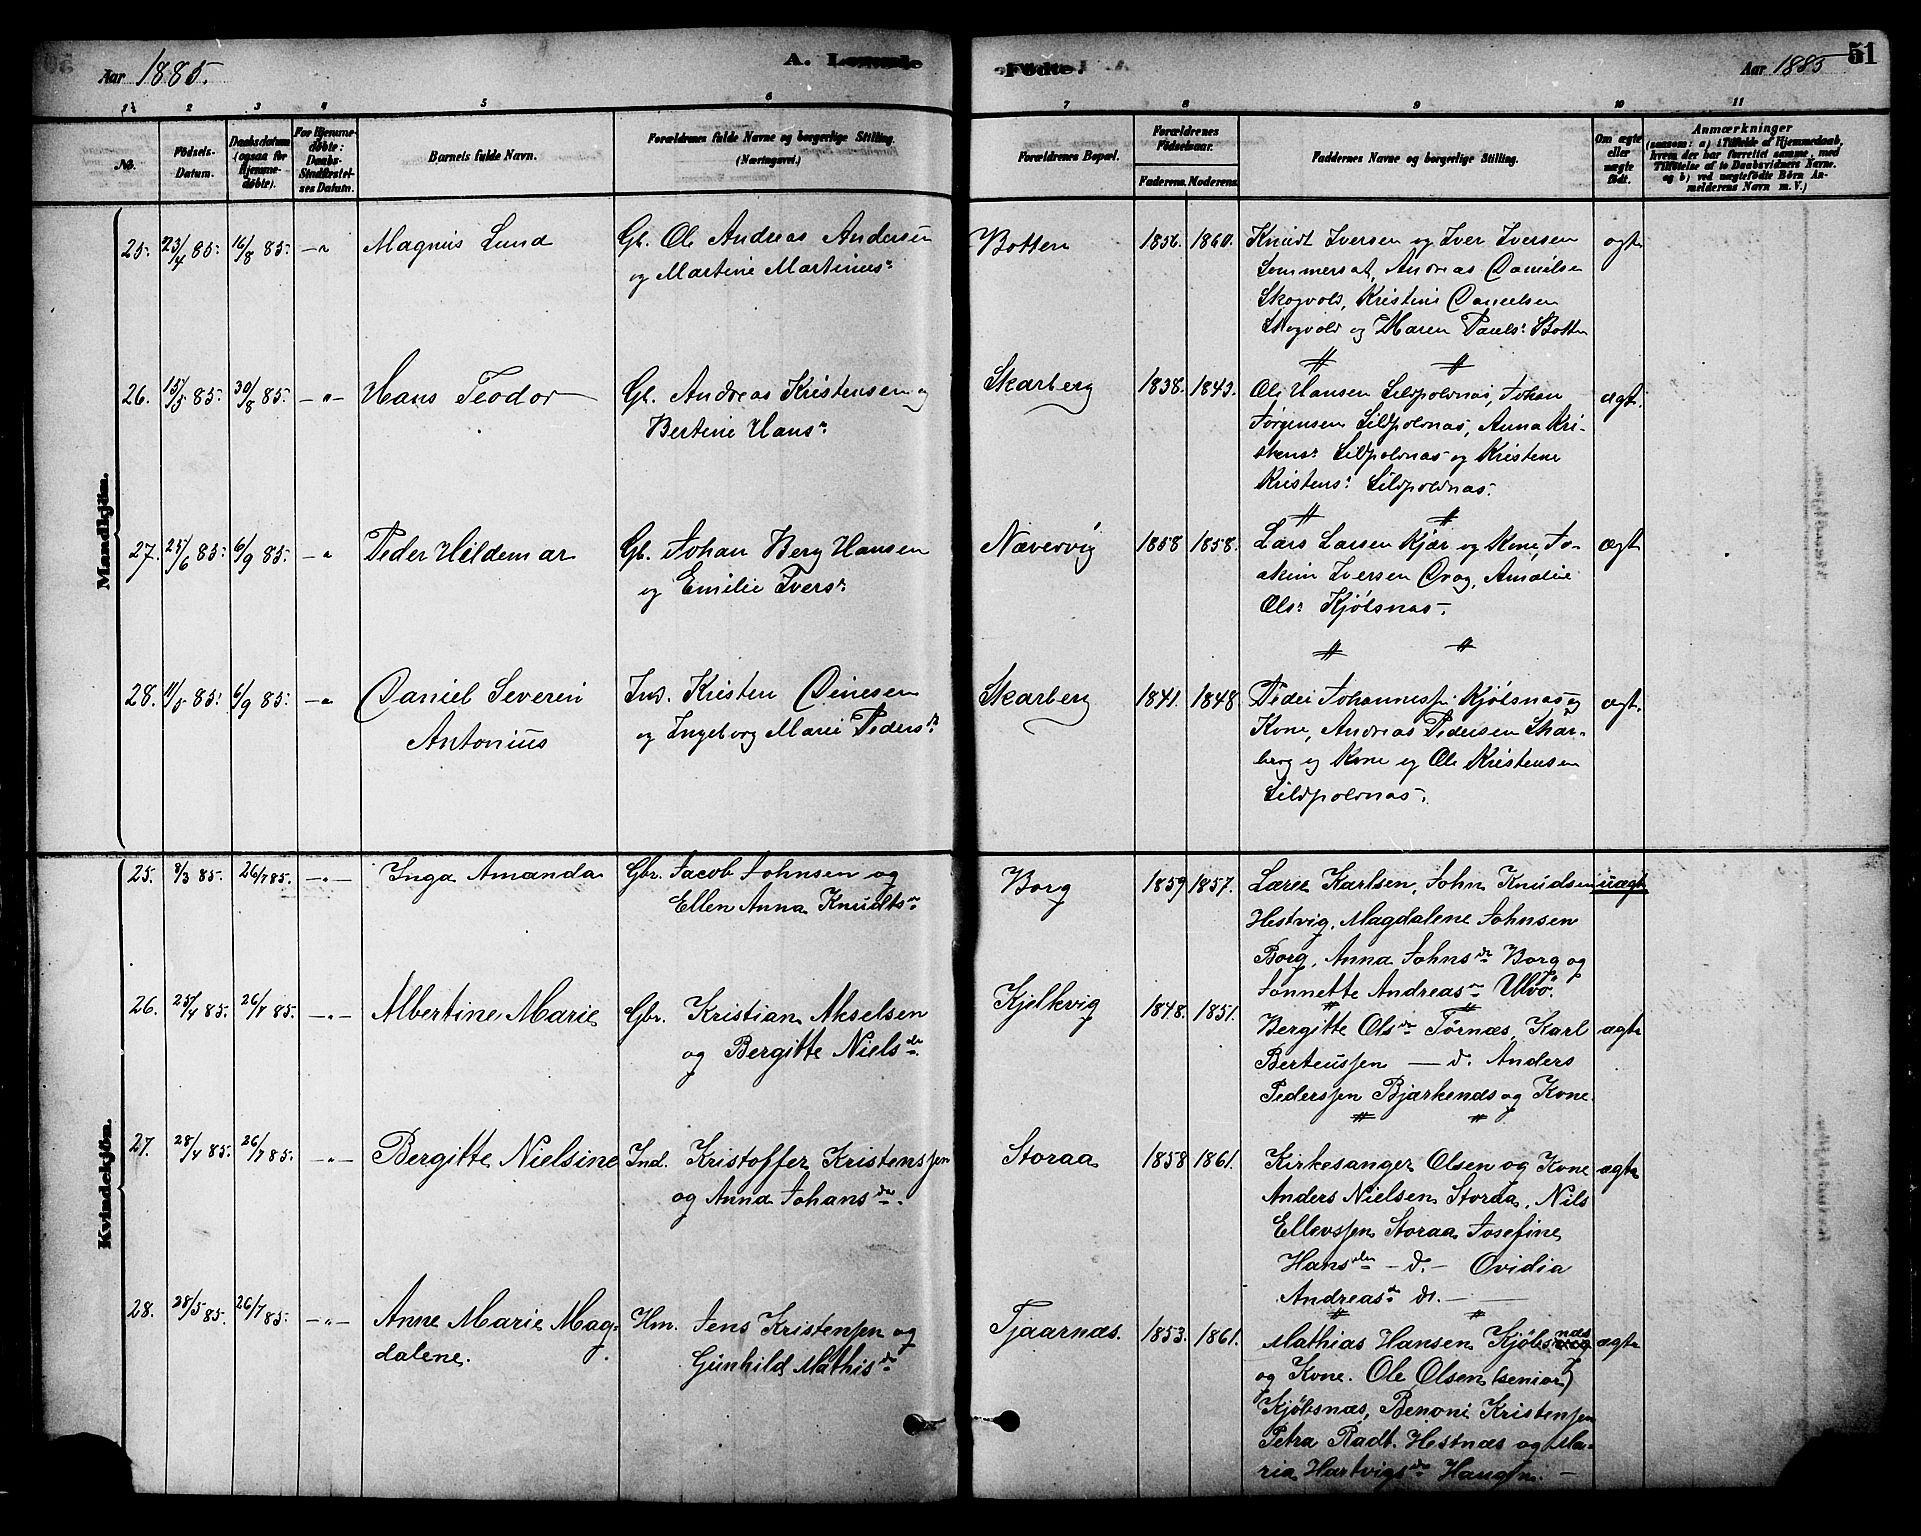 Aar 1885.
A. Levende
Fødte.
Aar 1885
51
1
2
3
4
5
6
7
8
9
10
11
No.
Fødsels-
Datum.
Daabsdatum
(ogsaa for
Hjemme-
døbte).
For Hjemme-
døbte:
Daabs-
Stadfæstel-
ses Datum.
Barnets fulde Navn.
Forældrenes fulde Navne og borgerlige Stilling.
(Næringsvei.)
Forældrenes Bopæl.
Forældrenes
Fødselsaar.
Faderens.
Moderens.
Faddernes Navne og borgerlige Stilling.
Om ægte
eller
uægte
født.
Anmærkninger
(saasom: a) i Tilfælde af Hjemmedaab,
hvem der har forrettet samme, med
Tilføielse af to Daabsvidners Navne,
og b) ved uægtefødte Børn An-
melderens Navn m. V.)
Mandkjøn.
25. 23/4 85. 16/8 85. —"
Magnus Lund
Gb. Ole Andreas Andersen
og Martine Martinus:
Botten
1856. 1860.
Knudt Iversen og Iver Iversen
Sommersæt, Andreas Danielsen
Skogvold, Kristine Danielsen
Skogvold og Maren Pauls: Botten
ægt
26. 15/5 85. 30/8 85. —"—
Hans Teodor
Gb. Andreas Kristensen og
Bertine Hans:
Skarberg
1838. 1843.
Ole Hansen Sildpoldnæs, Johan
Jørgensen Sildpoldnæs, Anna Kri-
stens: Sildpoldnæs og Kristene
Kristens: Sildpoldnæs.
ægt.
27. 25/6 85. 6/9 85. —"
Peder Hildemar
Gb. Johan Berg Hansen
og Emilie Ivers:
Nævervig
1858 1858.
Lars Larsen Kjær og Kone, Jo-
akim Iversen Drag, Amalie
Ols: Kjøbsnæs.
ægt
28. 11/5 85. 6/9 85. —"
Daniel Severin
Antonius
Ind. Kristen Dinesen
og Ingeborg Marie Peders:
Skarberg
1841. 1848
Peder Johannessen Kjøbsnæs og
Kone, Andreas Pedersen Skar-
berg og Kone og Ole Kristensen
Sildpoldnæs.
ægt.
Kvindekjøn.
25. 9/3 85. 26/7 85. —"—
Inga Amanda
Gbr. Jacob Johnsen og
Ellen Anna Knudtsdr
Borg
1859 1857.
Lærer Karlsen, John Knudsen
Hestvig, Magdalene Johnsen
Borg, Anna Johnsdr Borg og
Jonnette Andreasdr Ulvø.
uægte
26. 25/4 85. 26/7 85. —"—
Albertine Marie
Gbr. Kristian Akselsen
og Bergitte Nielsdr
Kjelkvig
1848. 1851.
Bergitte Olsdr Tørnæs, Karl
Berteussen — d. Anders
Pederssen Bjærkenæs og Kone.
ægte
27. 28/4 85. 26/7 85. —"—
Bergitte Nielsine
Ind. Kristoffer Kristenssen
og Anna Johansdr.
Storaa
1858 1861.
Kirkesanger Olsen og Kone
Anders Nielsen Storaa, Nils
Ellevssen Storaa Josefine
Hansdr — d. — Ovidia
Andreasdr d. —
ægte
28. 28/5 85. 26/7 85. —"—
Anne Marie Mag-
dalene.
Hm. Jens Kristensen og
Gunhild Mathisdr
Tjaarnæs.
1853. 1861.
Mathias Hansen Kjøbsnæs
og Kone. Ole Olsen (senior)
Kjøbsnæs, Benoni Kristensen
Petra Radt. Hestnæs og Ma-
ria Hartvigsdr Haugen. —
ægte